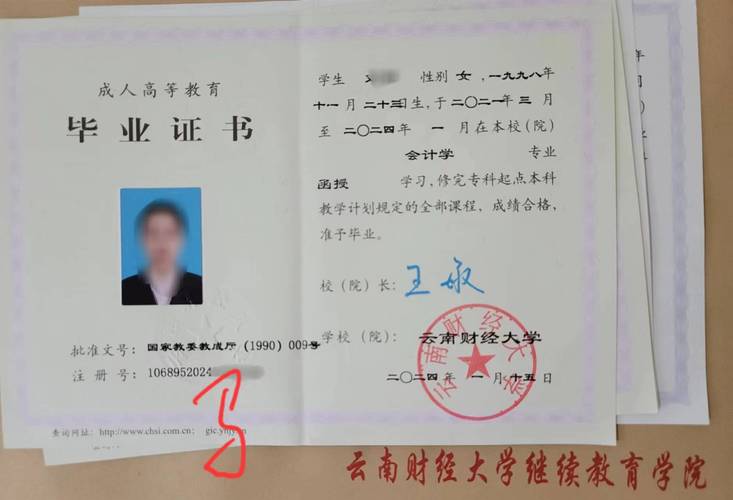 成人高等教育
毕业证书
批准文号：国家教委教成厅（1990）009号
注册号：1068952024
查询网址：http://www.chsi.com.cn；gjc.ynjy.cn
学生 性别 女，一九九八年
十一月二十三日生，于二〇二一年三月
至二〇二四年 一 月在本校（院）
会计学 专业
函授 学习，修完专科起点本科
教学计划规定的全部课程，成绩合格，
准予毕业。
校（院）长：王敏
学校（院）：云南财经大学
云南财经大学
二〇二四年 一 月十五日
云南财经大学继续教育学院